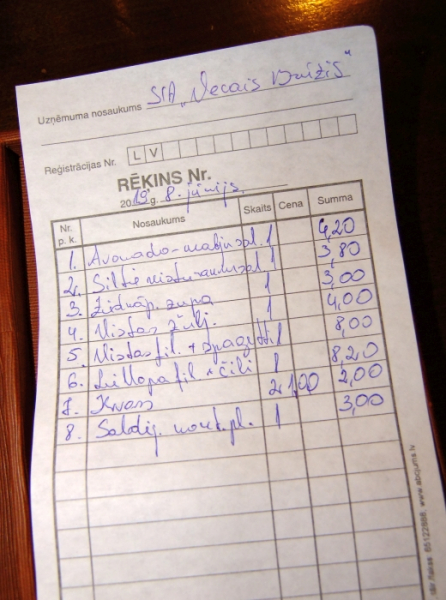 Uzņēmuma nosaukums SIA „Vecais
Reģistrācijas Nr. L V
RĒKINS Nr.
2019 g. 8. jūnijs
Nr. p. k. Nosaukums Skaits Cena Summa
1. Avokado- 1 4,20
2. Siltie 1 3,80
3. zupa 1 3,00
4. Vistas 1 4,00
5. Vistas fil. + spageti 1 8,00
6. Liellopa fil. + čili 1 8,20
7. Kvass 2 1,00 2,00
8. Saldēj. 1 3,00
www.abcjums.lv